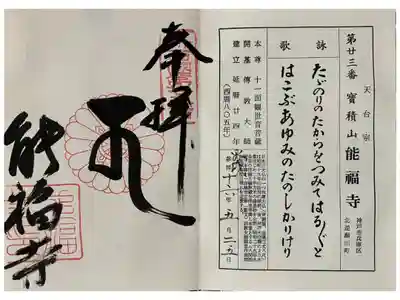 天台宗
第廿三番 寳積山 能福寺
神戸市兵庫区
北逆瀬川町
詠歌
たゞのりのたからをつみてはる〲と
はこぶあゆみのたのしかりけり
本尊 十一面観世音菩薩
開基 傳教大師
建立 延暦廿四年
(西暦八〇五年)
奉拝
能福寺